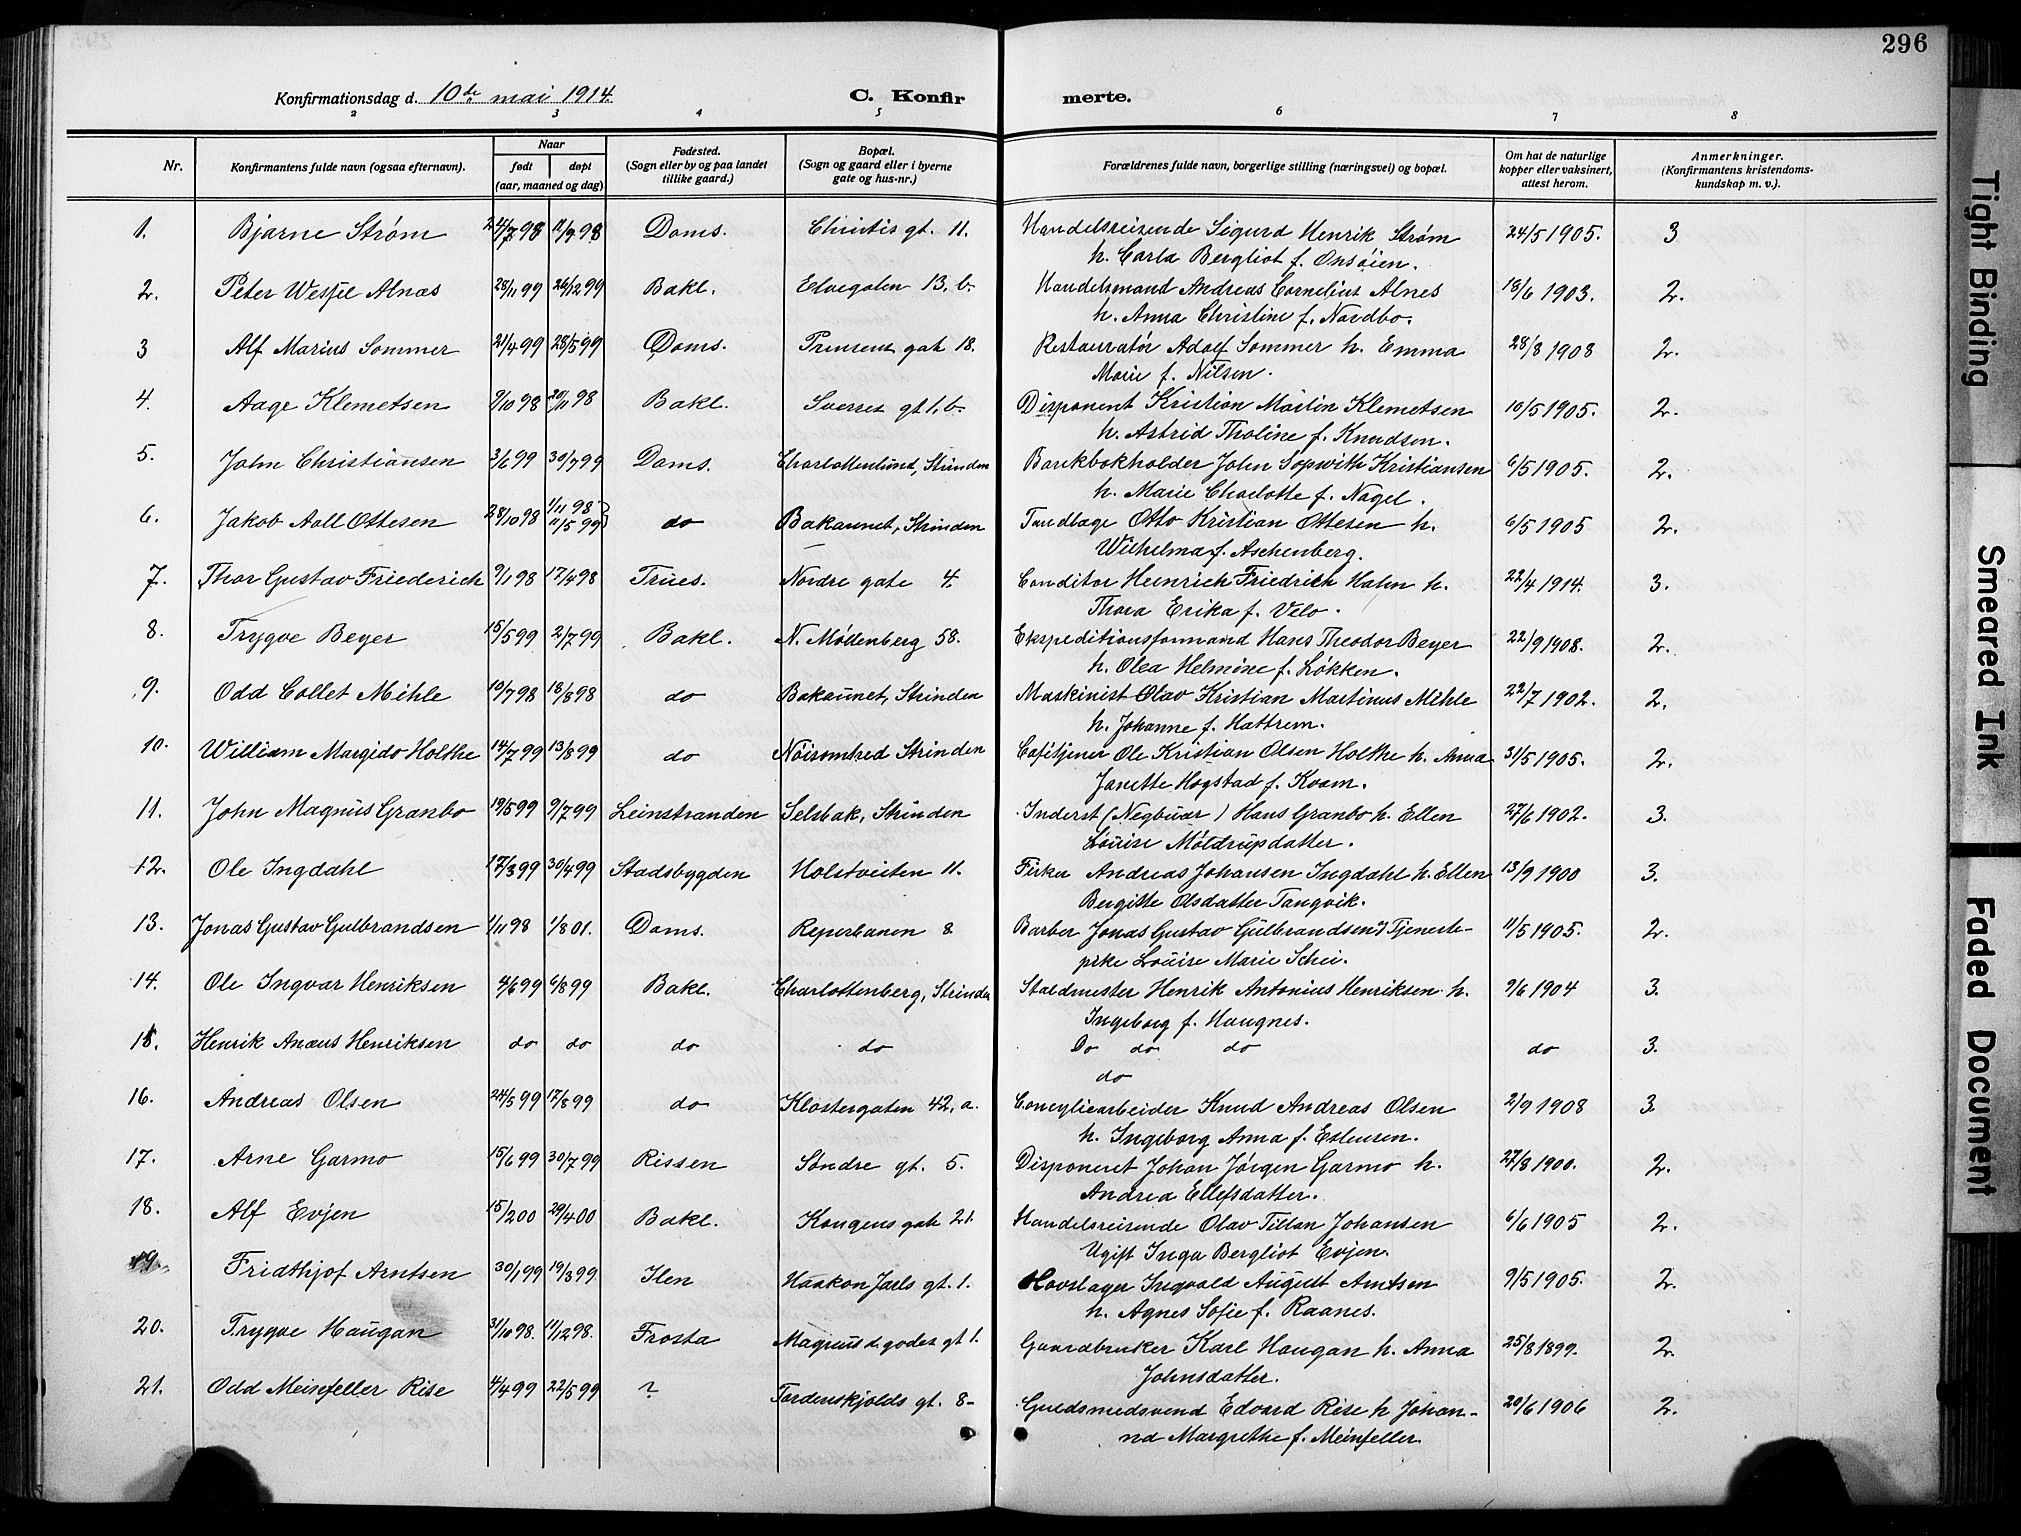 296
Konfirmationsdag d. 10de mai 1914.
C. Konfirmerte.
2 3 4 5 6 7 8
Nr.
Konfirmantens fulde navn (ogsaa efternavn).
Naar
født
døpt
(aar, maaned og dag)
Fødested.
(Sogn eller by og paa landet
tillike gaard.)
Bopæl.
(Sogn og gaard eller i byerne
gate og hus-nr.)
Forældrenes fulde navn, borgerlige stilling (næringsvei) og bopæl.
Om hat de naturlige
kopper eller vaksinert,
attest herom.
Anmerkninger.
(Konfirmantens kristendoms-
kundskap m. v.).
1. Bjarne Strøm 24/7 98 11/9 98 Doms. Christis gt. 11. Handelsreisende Sigurd Henrik Strøm 24/5 1905. 3
h. Carla Bergliot f. Onsøien.
2. Peter Wessel Alnæs 28/11 99 26/12 99 Bakl. Elvegaten 13. b. Handelsmand Andreas Cornelius Alnes 18/6 1903. 2.
h. Anna Christine f. Nordbo.
3 Alf Marius Sommer 21/4 99 28/5 99 Doms. Prinsens gate 18. Restauratør Adolf Sommer h. Emma 28/8 1908 2.
Marie f. Nilsen.
4. Aage Klemetsen 9/10 98 20/11 98 Bakl. Sverres gt 1. b. Disponent Kristian Martin Klemetsen 10/5 1905. 2.
h. Astrid Tholine f. Knudsen.
5. John Christiansen 3/6 99 30/7 99 Doms. Charlottenlund, Strinden Bankbokholder John Sopwith Kristiansen 6/5 1905. 2.
h. Marie Charlotte f. Nagel.
6. Jakob Aall Ottesen 28/10 98 1/11 98 11/5 99 do Bakaunet, Strinden Tandlæge Otto Kristian Ottesen h. 6/5 1905 2.
Wilhelma f. Aschenberg.
7. Thor Gustav Friederich 9/1 98 17/4 98 Trues. Nordre gate 4. Conditor Heinrich Friedrich Hahn h. 22/4 1914. 3.
Thora Erika f. Velo.
8. Trygve Beyer 15/5 99 2/7 99 Bakl. N. Mødenberg 58. Ekspeditionsformand Hans Theodor Beyer 22/9 1908. 2.
h. Olea Helmine f. Løkken.
9. Odd Collet Mihle 10/7 98 18/8 98 do Bakaunet, Strinden Maskinist Olav Kristian Martinus Mihle 22/7 1902. 2.
h. Johanne f. Hattrem.
10. William Margido Holthe 14/7 99 13/8 99 do Nøisomhed Strinden Cafétjener Ole Kristian Olsen Holthe h. Anna 31/5 1905. 2.
Janette Hogstad f. Kvam.
11. John Magnus Granbo 19/5 99 9/7 99 Leinstranden Selsbak, Strinden Inderst (Negbuar) Hans Granbo h. Ellen 27/6 1902. 3.
Louise Møldrupdatter.
12. Ole Ingdahl 17/3 99 30/4 99 Stadsbygden Holstveiten 11. Fisker Andreas Johansen Ingdahl h. Ellen 13/9 1900 3.
Bergitte Olsdatter Tangvik.
13. Jonas Gustav Gulbrandsen 1/11 98 1/8 01. Doms. Reperbanen 8 Barber Jonas Gustav Gulbrandsen og Tjeneste- 11/5 1905. 2.
pike Louise Marie Schei.
14. Ole Ingvar Henriksen 4/6 99 6/8 99 Bakl. Charlottenberg, Strinden Staldmester Henrik Antonius Henriksen h. 9/6 1904 3.
Ingeborg f. Haugnes.
15. Henrik Anæus Henriksen do do do do Do do do do 3.
do
16. Andreas Olsen 24/5 99 17/8 99 do Klostergaten 42, a. Concyliearbeider Knud Andreas Olsen 2/9 1908 3.
h. Ingeborg Anna f. Estensen.
17. Arne Garmo 15/6 99 30/7 99 Rissen Søndre gt. 5. Disponent Johan Jørgen Garmo h. 27/8 1900. 2.
Andrea Ellefsdatter.
18. Alf Evjen 15/2 00 29/4 00 Bakl. Kongens gate 21. Handelsreisende Olav Tillan Johansen 6/6 1905 2.
Ugift Inga Bergliot Evjen.
19. Fridthjof Arntsen 30/1 99 19/3 99 Ilen Haakon Jarls gt. 1. Hovslager Ingvald August Arntsen 9/5 1905. 2.
h. Agnes Sofie f. Raanes.
20. Trygve Haugan 31/10 98. 11/12 98. Frosta Magnus d. godes gt 1. Gaardbruker Karl Haugan h. Anna 25/8 1899. 2.
Johnsdatter.
21. Odd Meinfeller Rise 4/4 99 22/5 99 ? Tordenskjolds gt. 8- Guldsmedsvend Edvard Rise h Johan- 20/6 1906 2.
na Margrethe f. Meinfeller.
Tight Binding
Smeared Ink
Faded Document